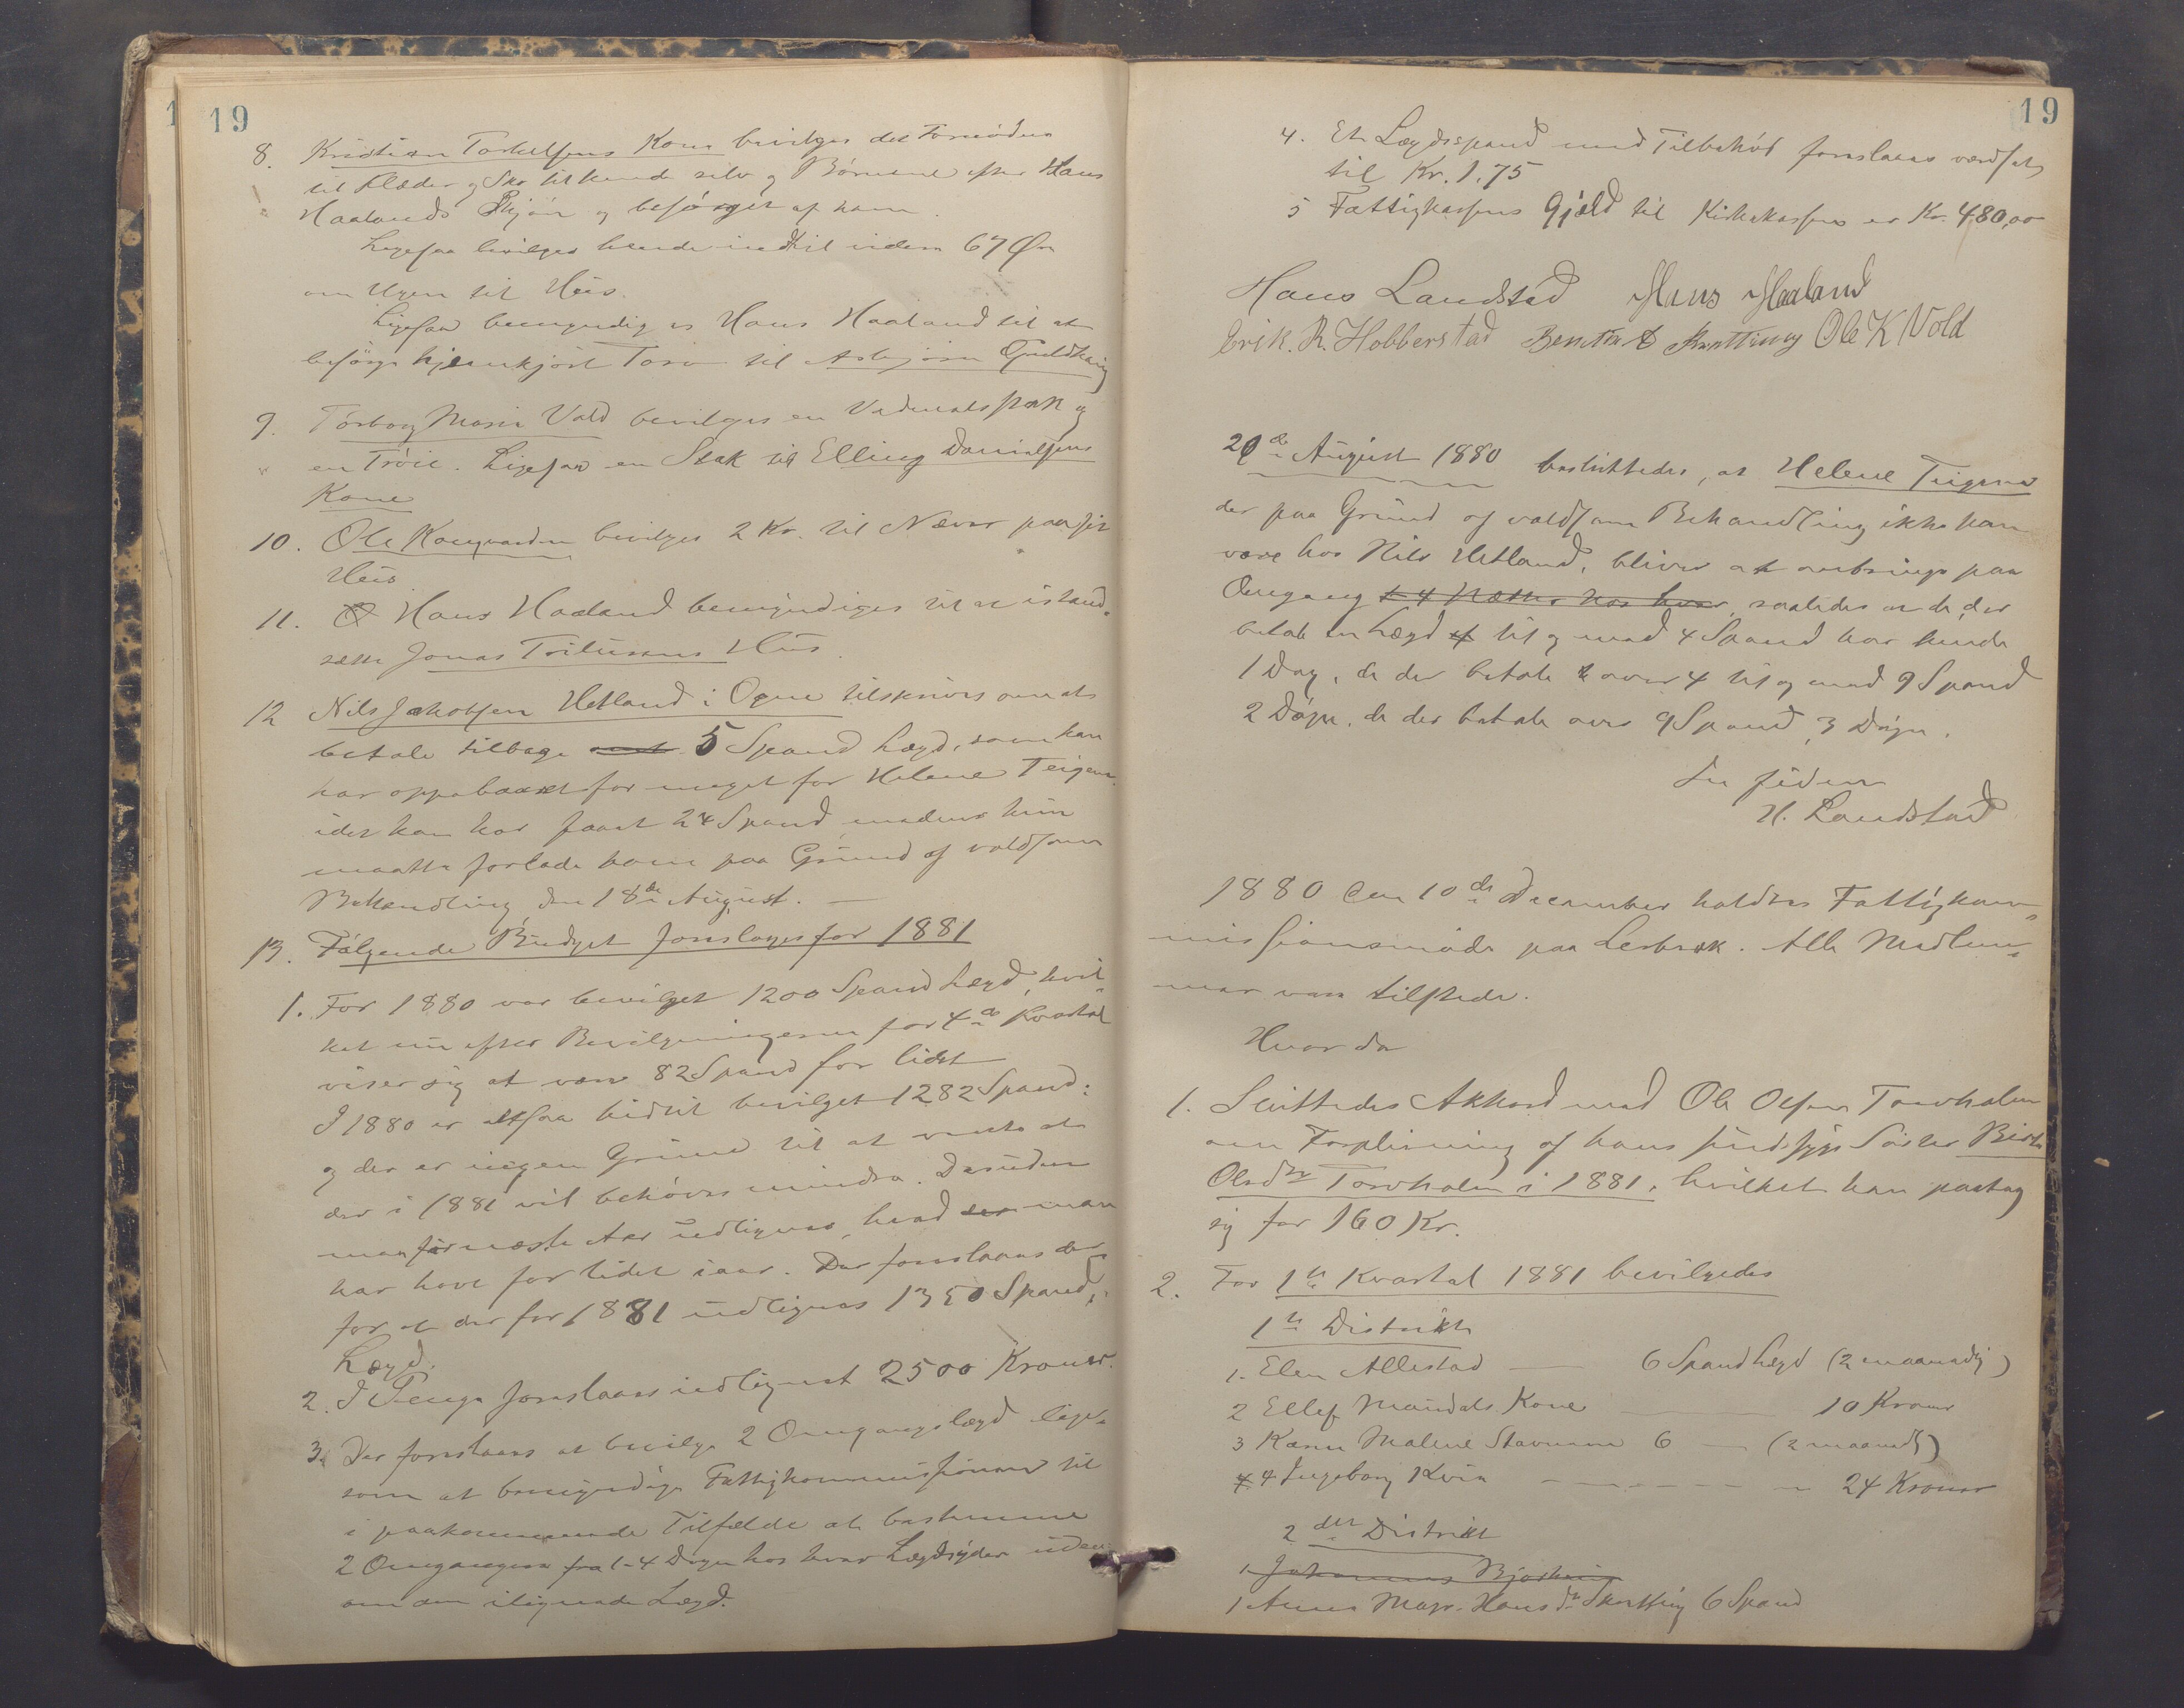 19
8. Kristian Torkelsens Kone bevilges det Fornødne
til Klæder og Sko til hende selv og Børnene efter Hans
Haalands Skjøn og besørget af ham.
Ligesaa bevilges hende indtil videre 67 Øre
om Ugen til Hus.
Ligesaa bemyndiges Hans Haaland til at
besørge hjemkjørt Torv til Asbjørn
9. Torborg Maria Vold bevilges en Vadmelsstak og
en Trøie. Ligesaa en Stak til Elling Danielsens
Kone
10. Ole Kongevarden bevilges 2 Kr. til Næver paa sit
Hus
11. Hans Haaland bemyndiges til at istand-
sætte Jonas Hus.
12 Nils Jakobsen Hetland i Ogne tilskrives om at
betale tilbage 5 Spand Lægd, som han
har oppebaaret for meget for Helene Teigen
idet han har faaet 24 Spand, medens hun
maatte forlade ham paa Grund af voldsom
Behandling den 18de August. —
13. Følgende Budget foreslages for 1881
1. For 1880 var bevilget 1200 Spand Lægd, hvil-
ket nu efter Bevilgningerne for 4de Kvartal
viser sig at være 82 Spand for lidet
I 1880 er altsaa hidtil bevilget 1282 Spand:
og der er ingen Grund til at vente at
der i 1881 vil behøves mindre. Desuden
maa for næste Aar udlignes, hvad man
har havt for lidet iaar. Der foreslaaes der-
for at der for 1881 udlignes 1350 Spand
Lægd.
2. I Penge foreslaaes udlignet 2500 Kroner.
3. Der foreslaaes at bevilge 2 Omgangslægd lige-
som at bemyndige Fattigkommissionen til
i paakommende Tilfælde at bestemme
2 Omgangere fra 1-4 Døgn hos hver Lægdsyder uden-
om den ilignede Lægd.
19
4. Et Lægdsspand med Tilbehør foreslaaes værdsat
til Kr. 1.75
5 Fattigkassens Gjæld til Kirkekassen er Kr. 480,00
Hans Landstad Hans Haaland
Erik. R. Hobberstad Ole K Vold
20de August 1880 besluttedes, at Helene Teigen
der paa Grund af voldsom Behandling ikke kan
være hos Nils Hetland, bliver at anbringe paa
Omgang 4 Nætter hos hver, saaledes at de, der
betale en Lægd til og med 4 Spand har hende
1 Dag, de der betale over 4 til og med 9 Spand
2 Døgn, de der betale over 9 Spand, 3 Døgn.
H. Landstad
1880 den 10de December holdtes Fattigkom-
missionsmøde paa Lerbræk. Alle Medlem-
mer vare tilstede.
Hvor da
1. Sluttedes Akkord med Ole Olsen Torvholen
om Forpleining af hans sindssyge Søster Berte
Olsdtr Torvholen i 1881, hvilket han paatog
sig for 160 Kr.
2. For 1ste Kvartal 1881 bevilgedes
1ste Distrikt
1. Elen Allestad — 6 Spand Lægd (2 maanedlig)
2 Ellef Maudals Kone — 10 Kroner
3 Karen Malene Stavnem 6 — (2 maanedl)
4 Ingeborg Kvia — 24 Kroner
2det Distrikt
1 Johannes
1 Anna Hansdtr 6 Spand